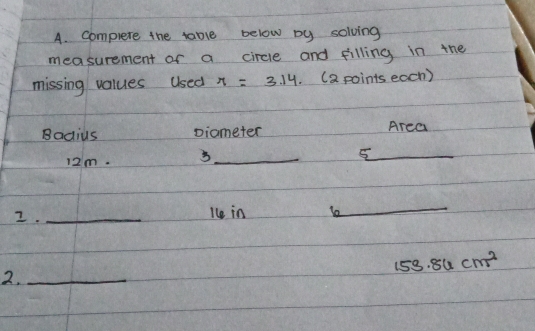 A. Complete the table below by solving
measurement of a circle and filling in the
missing values Used π = 3.14. (2 points each)
Radius Diameter Area
12m. 3 5
1. 16 in 6
2. 153.86 cm²